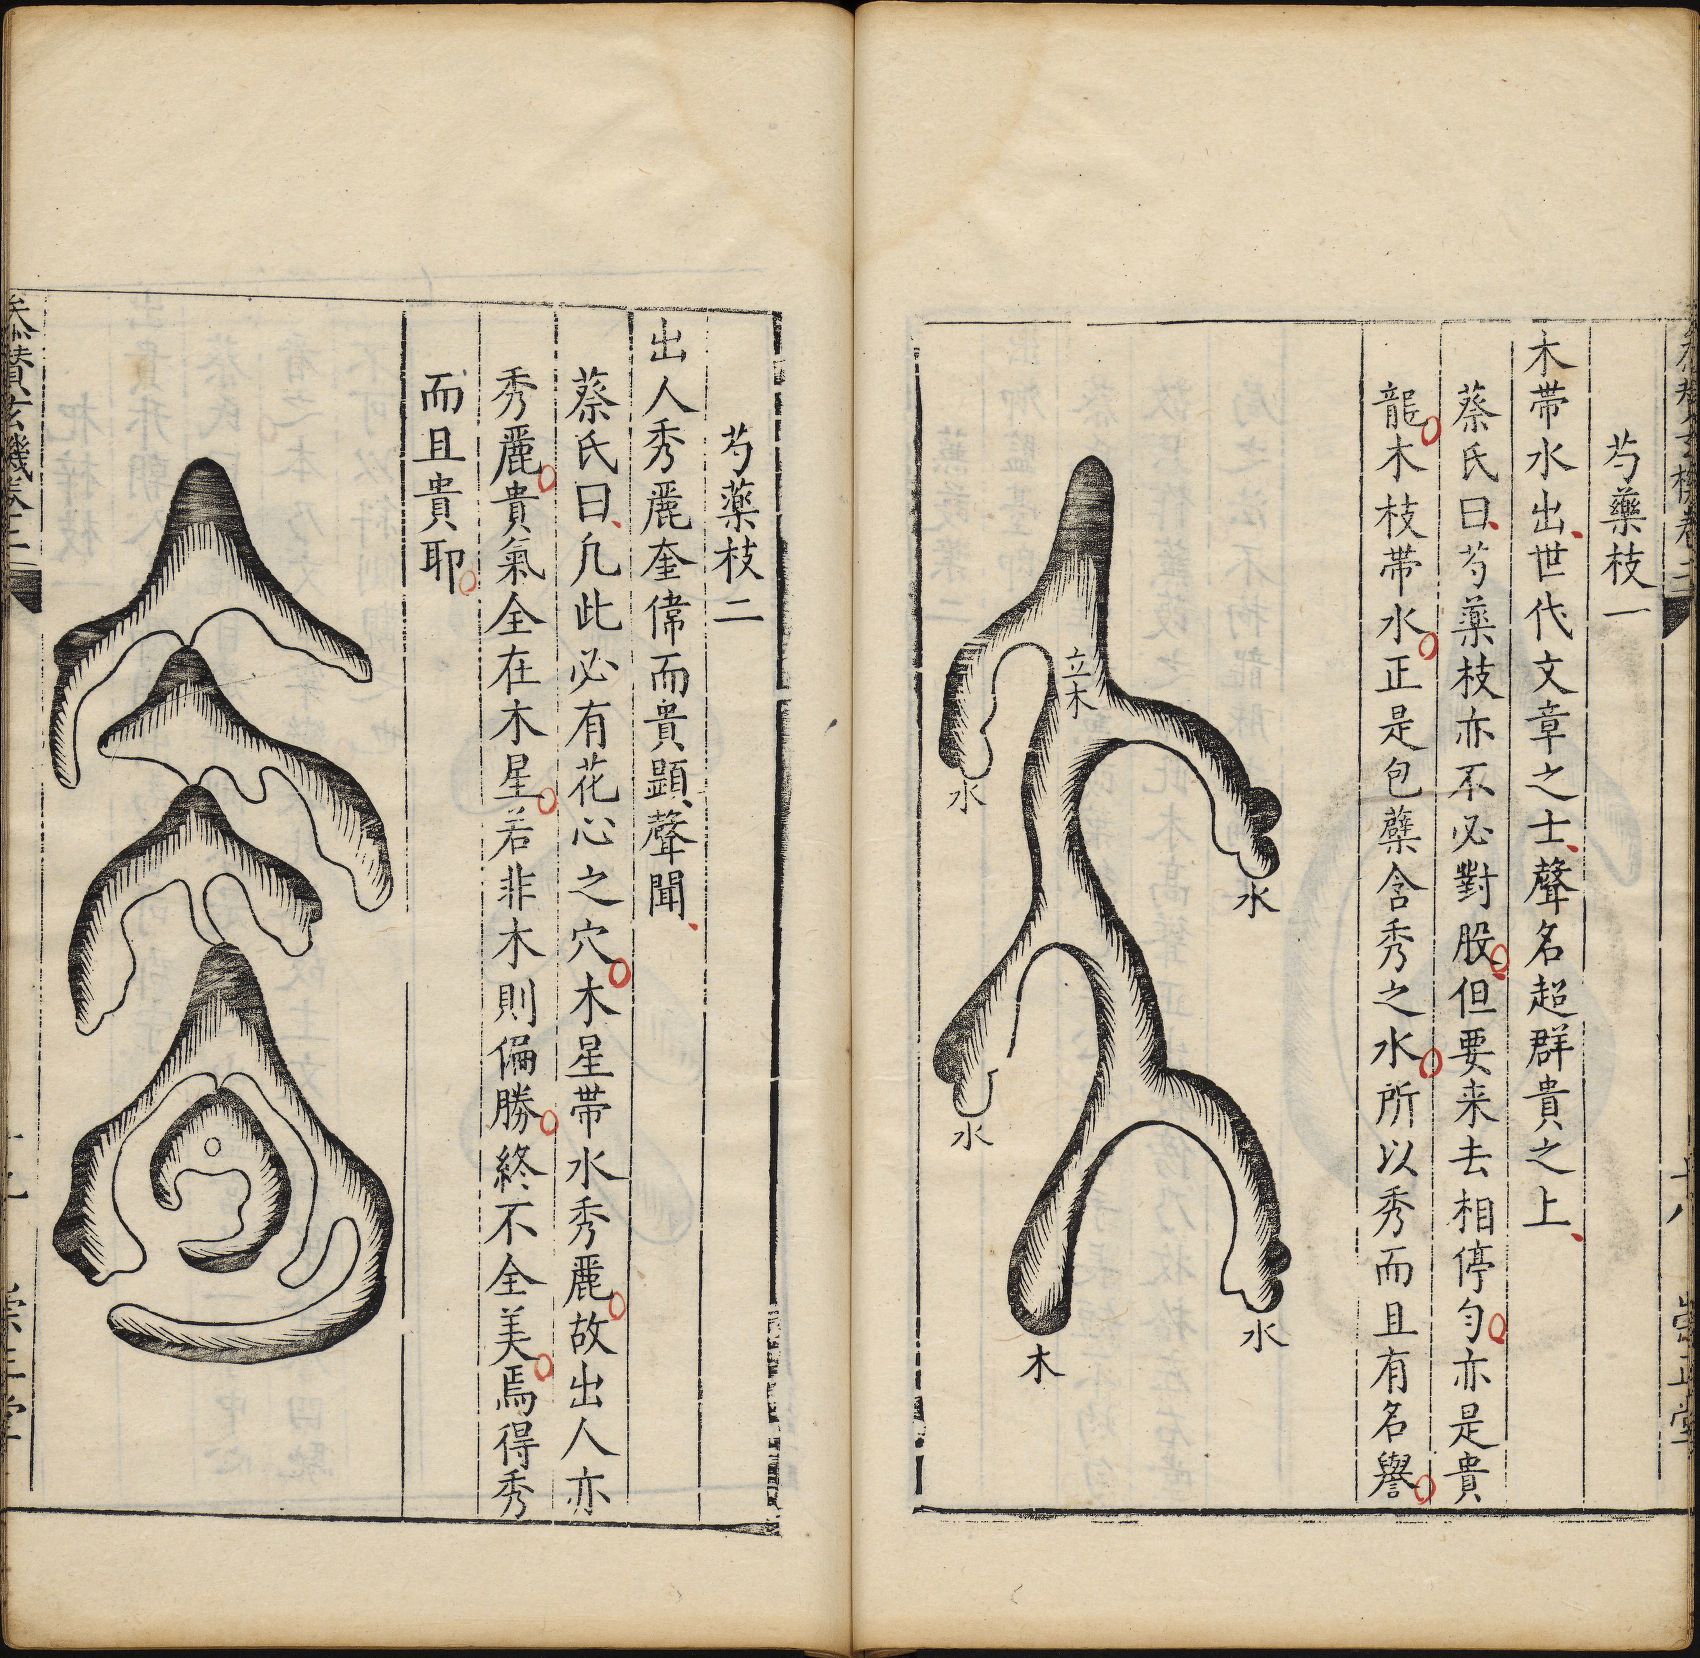 芍藥枝一
木帶水出世代文章之士聲名超群貴之上
蔡氏曰芍藥枝亦不必對股但要来去相停勻亦是貴
龍木枝帶水正是包蘖含秀之水所以秀而且有名譽
立木
水
水
水
水
木
芍藥枝二
出人秀麗奎偉而貴顯聲聞
蔡氏曰凢此必有花心之穴木星帶水秀麗故出人亦
秀麗貴氣全在木星若非木則偏勝終不全美焉得秀
而且貴耶